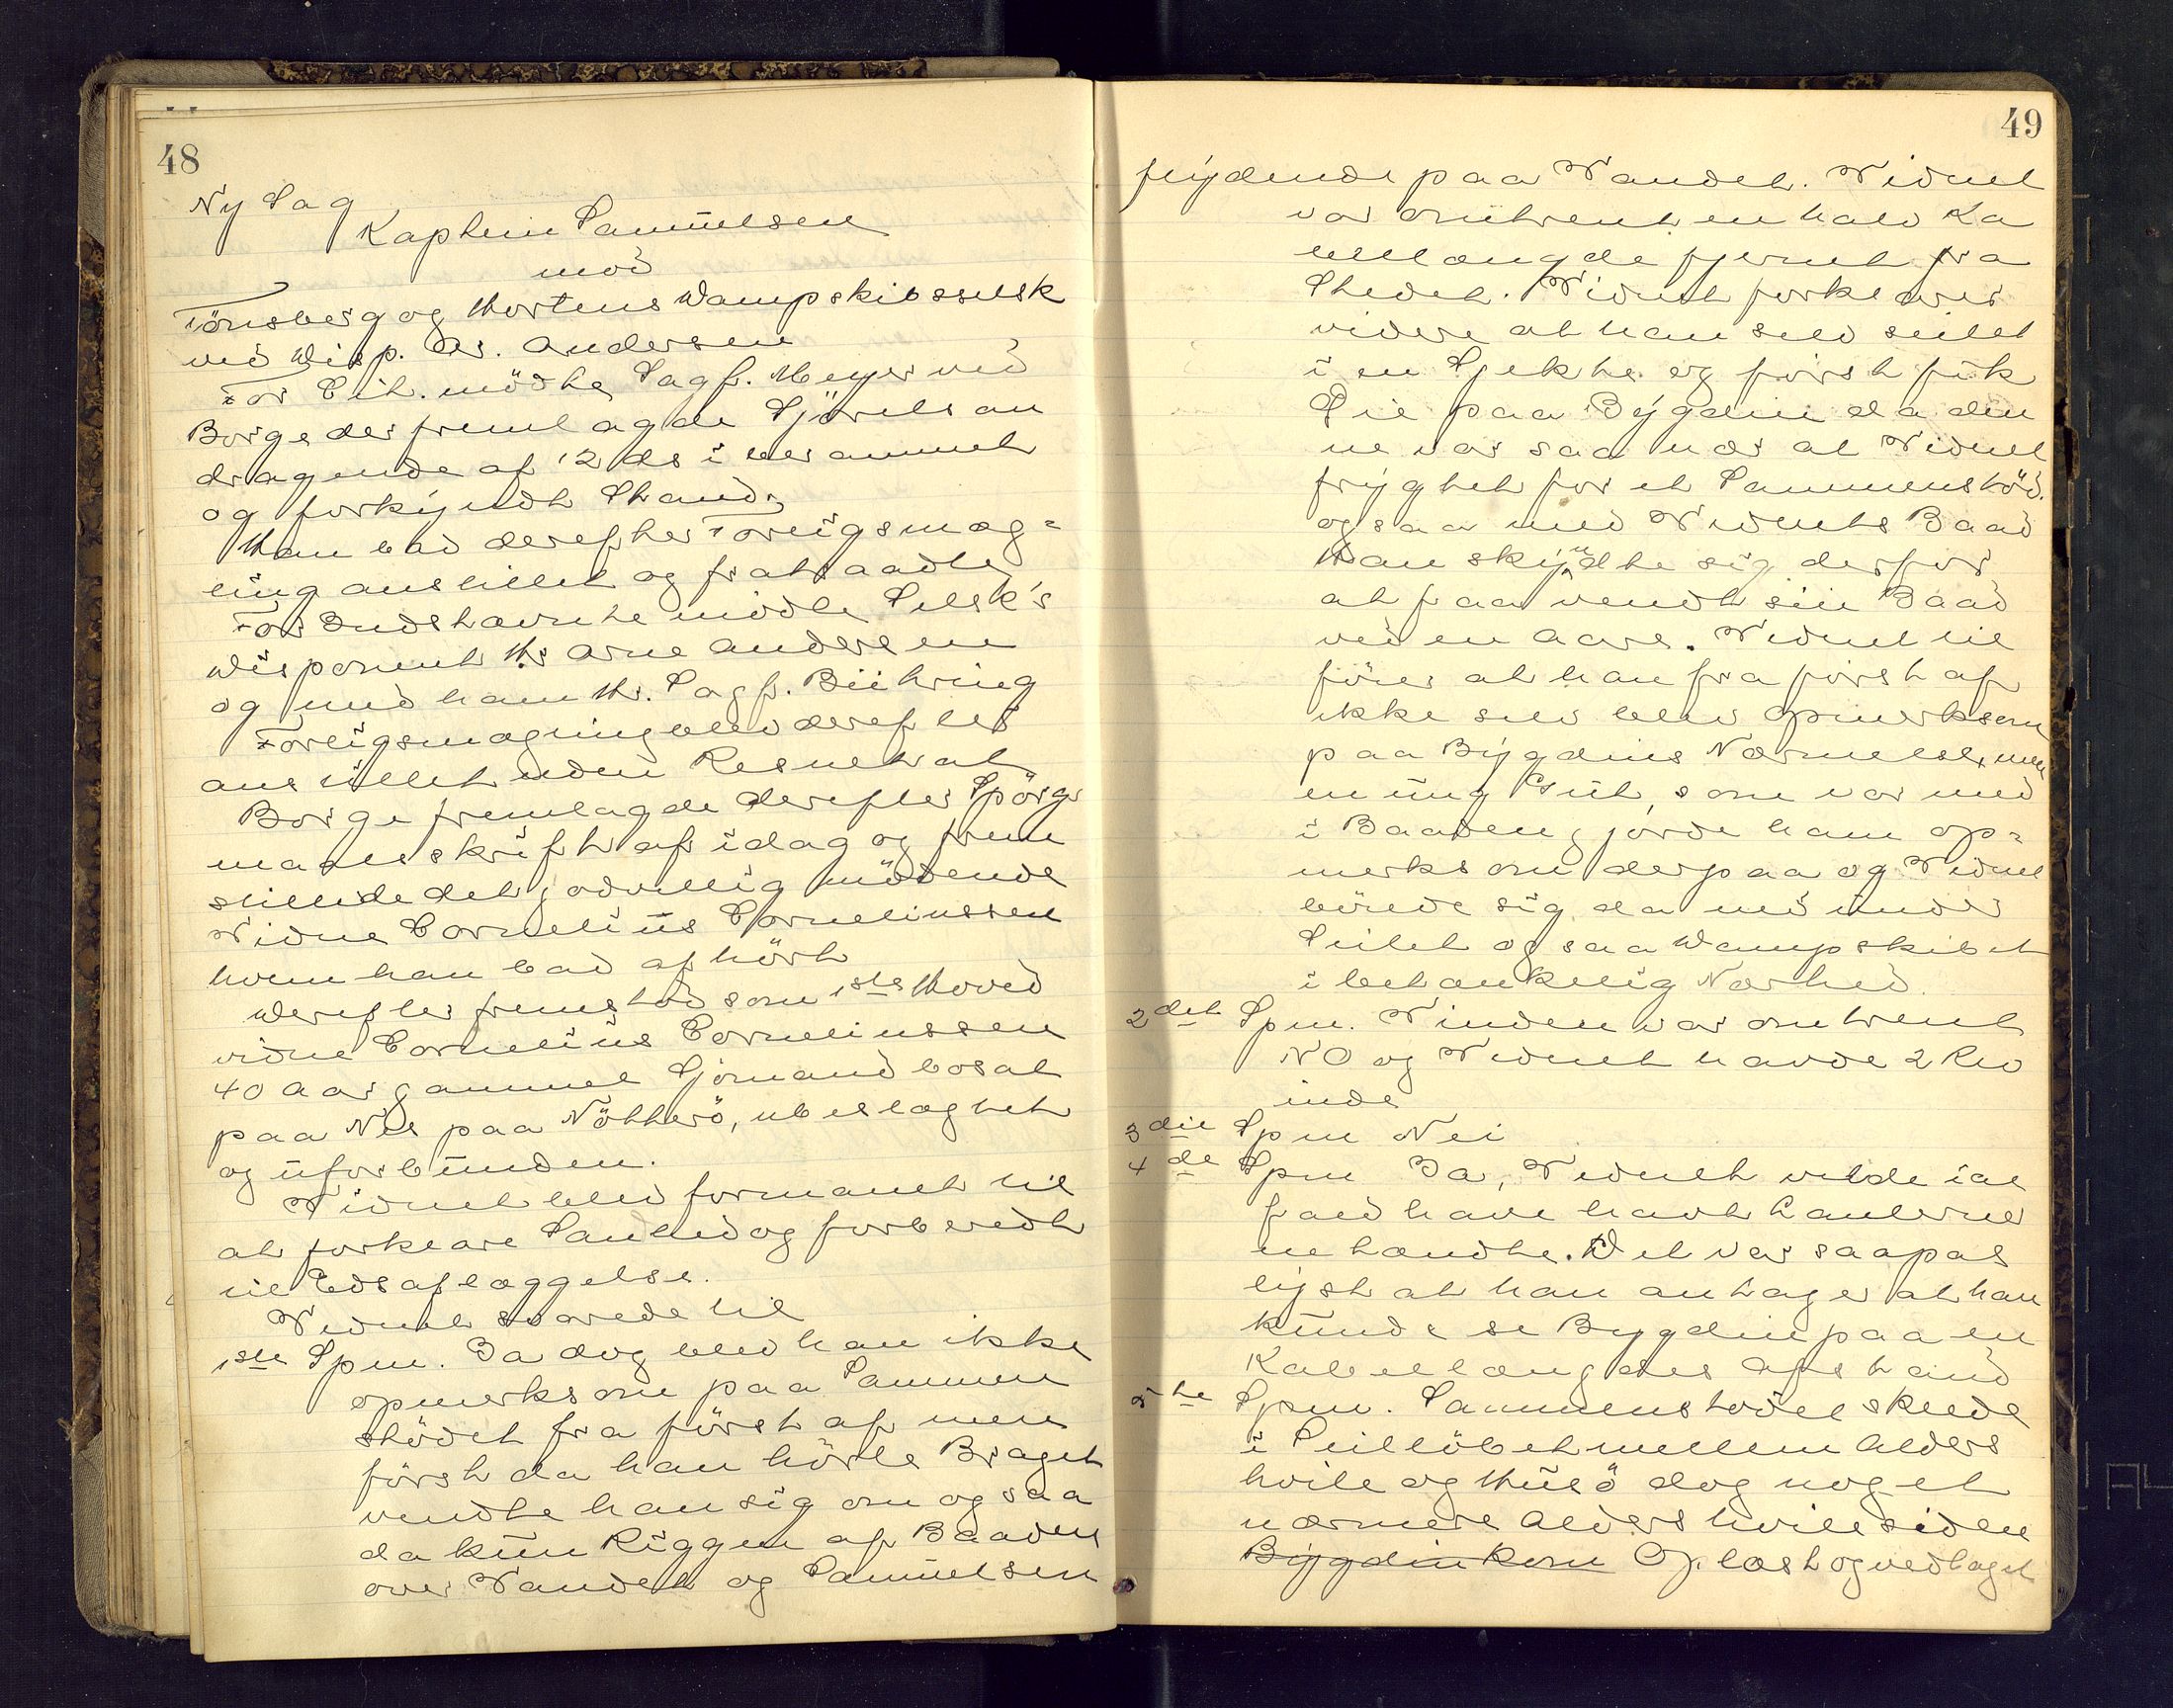 48
Ny Sag
Kaptein Samuelsen
mod
Tönsberg og Hortens Dampskibsselsk
ved Disp. Ar. Andersen
For Cit. mödte Sagf. Meyer ved
Borge der fremlagde Sjöretsan
dragende af 12 ds i bes ammet
og forkyndt Stand.
Han bad derefter Forligsmæg=
ling anstillet og fratraadte
For Indstævnte mödte Selsk's
Disponent Hr Arne Andersen
og med ham Hr. Sagf. Bühring
Forligsmægning blev derefter
anstillet uden Resuetat
Borge fremlagde derefter Spörgs
maalsskrift af idag og frem
stillede det godvillig mödende
Vidne Cornelius Corneliussen
hvem han bad afhört
Derefter fremstod som 1ste Hoved
vidne Cornelius Corneliussen
40 Aar gammel Sjömand bosat
paa Nes paa Nötterö, ubeslægtet
og uforbunden.
Vidnet blev formanet til
at forklare Sandhed og forberedt
til Edsaflæggelse.
Vidnet svarede til
1ste Spm. Ja dog blev han ikke
opmerksom paa Sammen
stödet fra först af men
först da han hörte Braget
vendte han sig om og saa
da kun Riggen af Baaden
over Vandet og Samuelsen
49
flydende paa Vandet. Vidnet
var omtrent en halv Ka
bellængde fjernet fra
Stedet. Vidnet forklarer
videre at han selv seilet
i en Sjekte og först fik
Öie paa Bygdin da den
ne var saa nær at Vidnet
frygtet for et Sammenstöd.
ogsaa med Vidnets Baad
Han skyndte sig derfor
at faa vendt sin Baad
ved en Aare. Vidnet til
föier at han fra först af
ikke selv blev opmerksom
paa Bygdins Nærmelse, men
en ung Gut, som var med
i Baaden gjorde ham op=
merksom derpaa og Vidnet
böiede sig da ned under
Seilet og saa Dampskibet
i betænkelig Nærhed.
2det Spm. Vinden var omtrent
NO og Vidnet havde 2 Rev
inde
3die Spm Nei
4de Spm Ja, Vidnet vilde ial
fald have havt Lanterne
ne tændte. Det var saapas
lyst at han antager at han
kunde se Bygdin paa en
Kabellængdes Afstand
5te Spm. Sammenstödet skede
i Seillöbet mellem Alders
hvile og Husö dog noget
nærmere Aldershvilesiden
Bygdin kom Oplæst og vedtaget